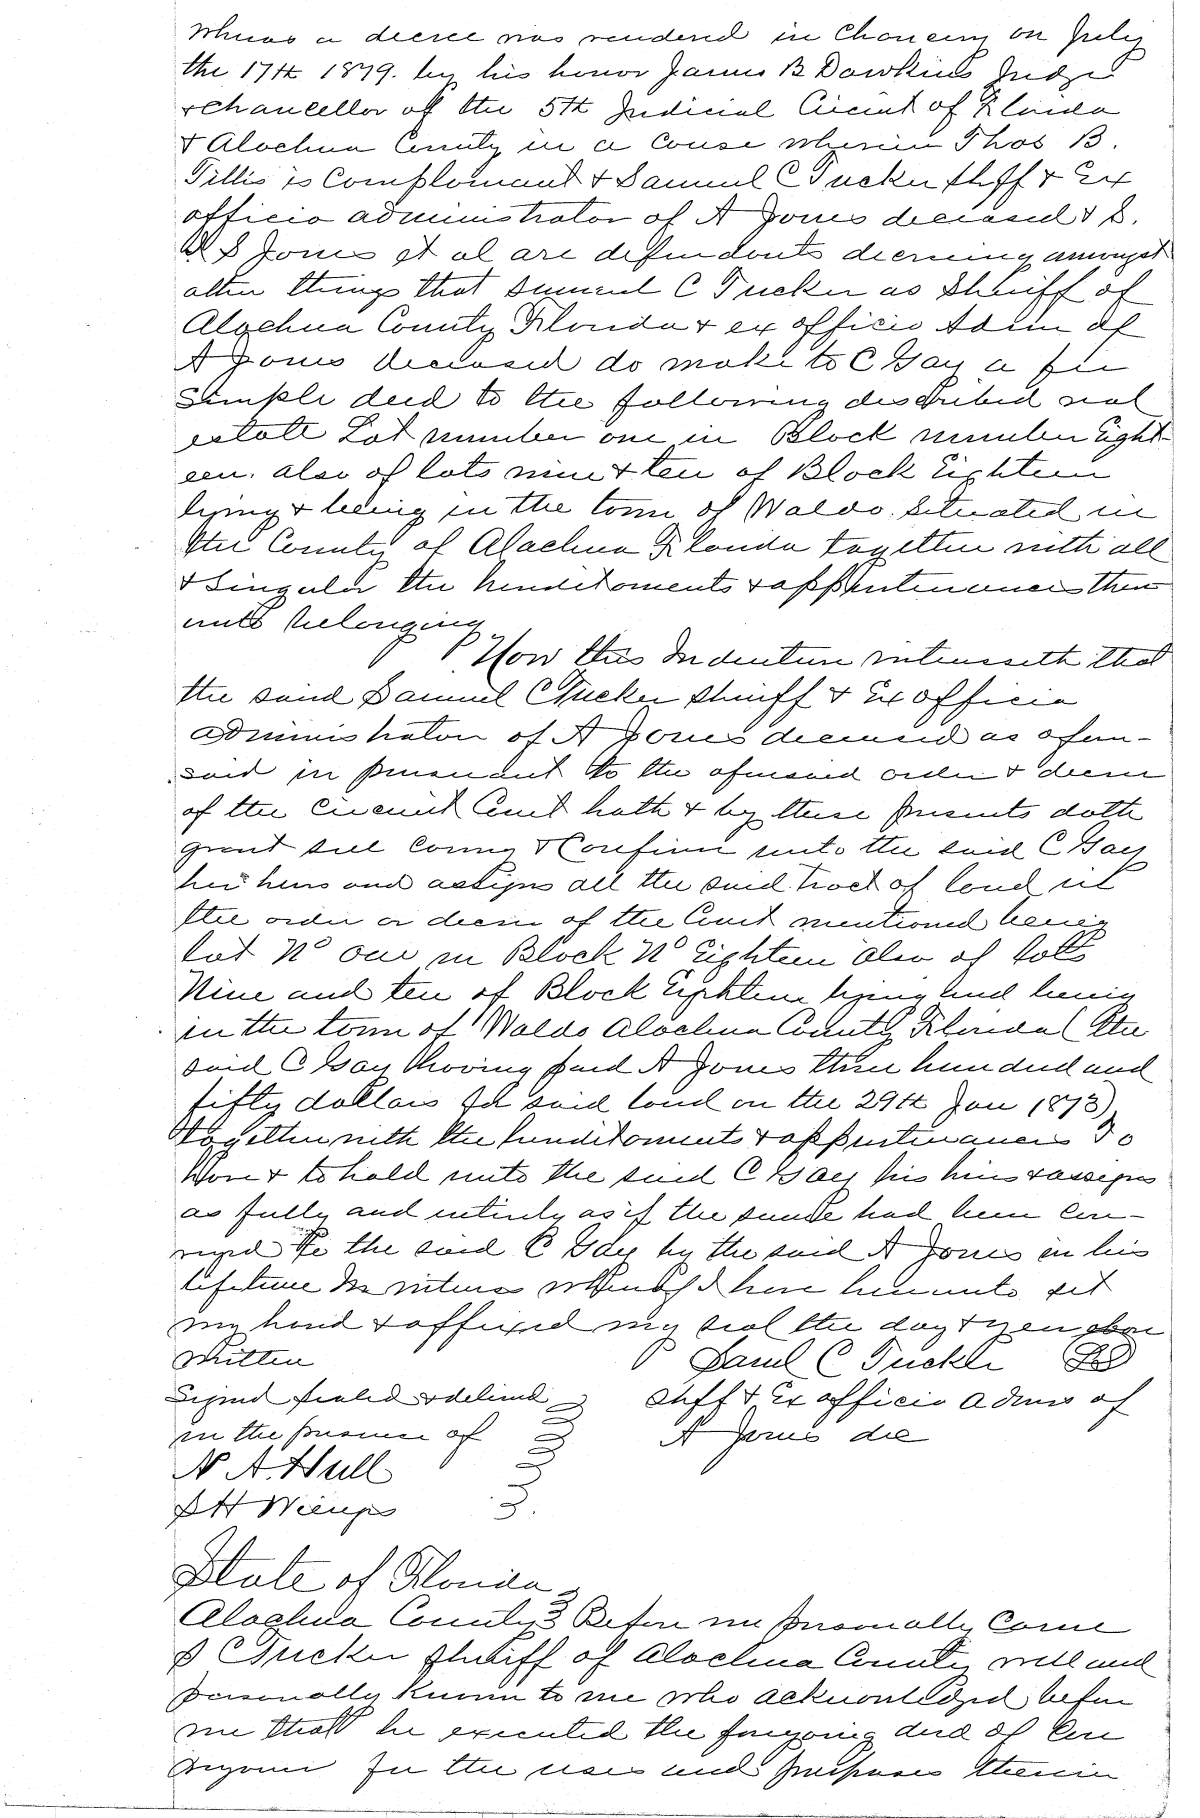 Whereas a decree was rendered in Chancery on July
the 17th 1879. by his honor James B Dawkins Judge
& Chancellor of the 5th Judicial Circuit of Florida
& Alachua County in a cause wherein Thos B.
Tillis is Complainant & Samuel C Tucker Shff & Ex
officio administrator of A Jones deceased & S.
S Jones et al are defendants decreeing amongst
other things that Samuel C Tucker as Sheriff of
Alachua County Florida & ex officio Adm of
A Jones deceased do make to C Gay a fee
simple deed to the following described real
estate Lot number one in Block number Eight-
een. also of lots nine & ten of Block Eighteen
lying & being in the town of Waldo. Situated in
the County of Alachua Florida together with all
& Singular the hereditaments & appurtenances there
unto belonging
Now this Indenture witnesseth that
the said Samuel C Tucker Sheriff & Ex officio
administrator of A Jones deceased as afore-
said in pursuant to the aforesaid order & decree
of the Circuit Court hath & by these presents doth
grant sell convey & Confirm unto the said C Gay
her heirs and assigns all the said tract of land in
the order or decree of the Court mentioned being
lot No one in Block No Eighteen also of lotts
Nine and ten of Block Eighteen lying and being
in the town of Waldo Alachua County Florida (the
said C Gay having paid A Jones three hundred and
fifty dollars for said land on the 29th Jan 1873)
together with the hereditaments & appurtenances To
Have & to hold unto the said C Gay his heirs & assigns
as fully and entirely as if the same had been con-
veyed to the said C Gay by the said A Jones in his
lifetime In witness whereof I have hereunto set
my hand & affixed my seal the day & year above
written Saml C Tucker
Signed sealed & delivered Shff & Ex officio Admr of
in the presence of A Jones dec
N A. Hull
S H
State of Florida
Alachua County Before me personally Came
S C Tucker Sheriff of Alachua County well and
personally known to me who acknowledged before
me that he executed the foregoing deed of Con
veyance for the uses and purposes therein